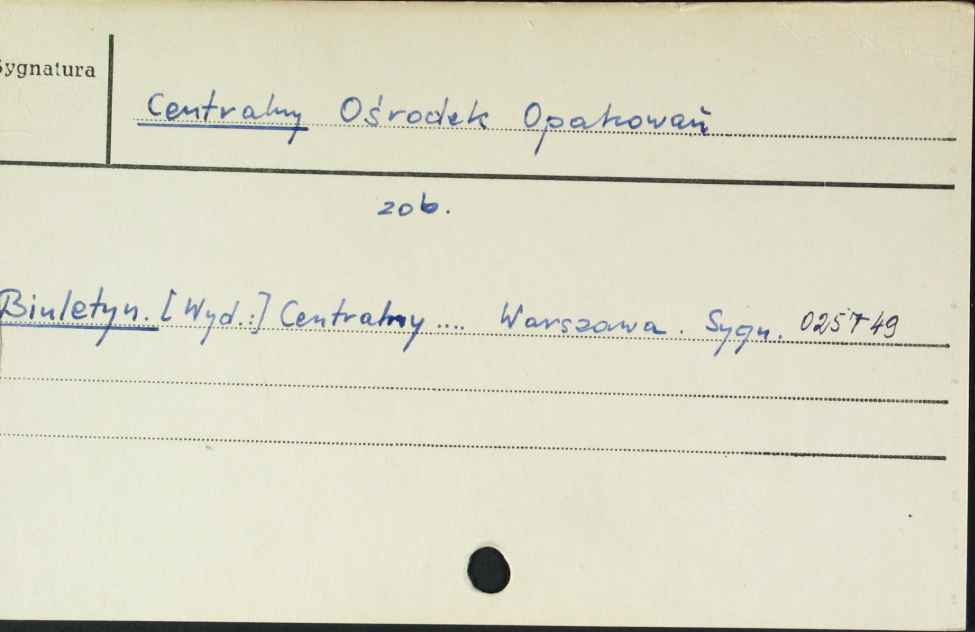 Sygnatura
Centralny Ośrodek Opakowań
zob.
Biuletyn. [Wyd.:] Centralny .... Warszawa. Sygn. 025749